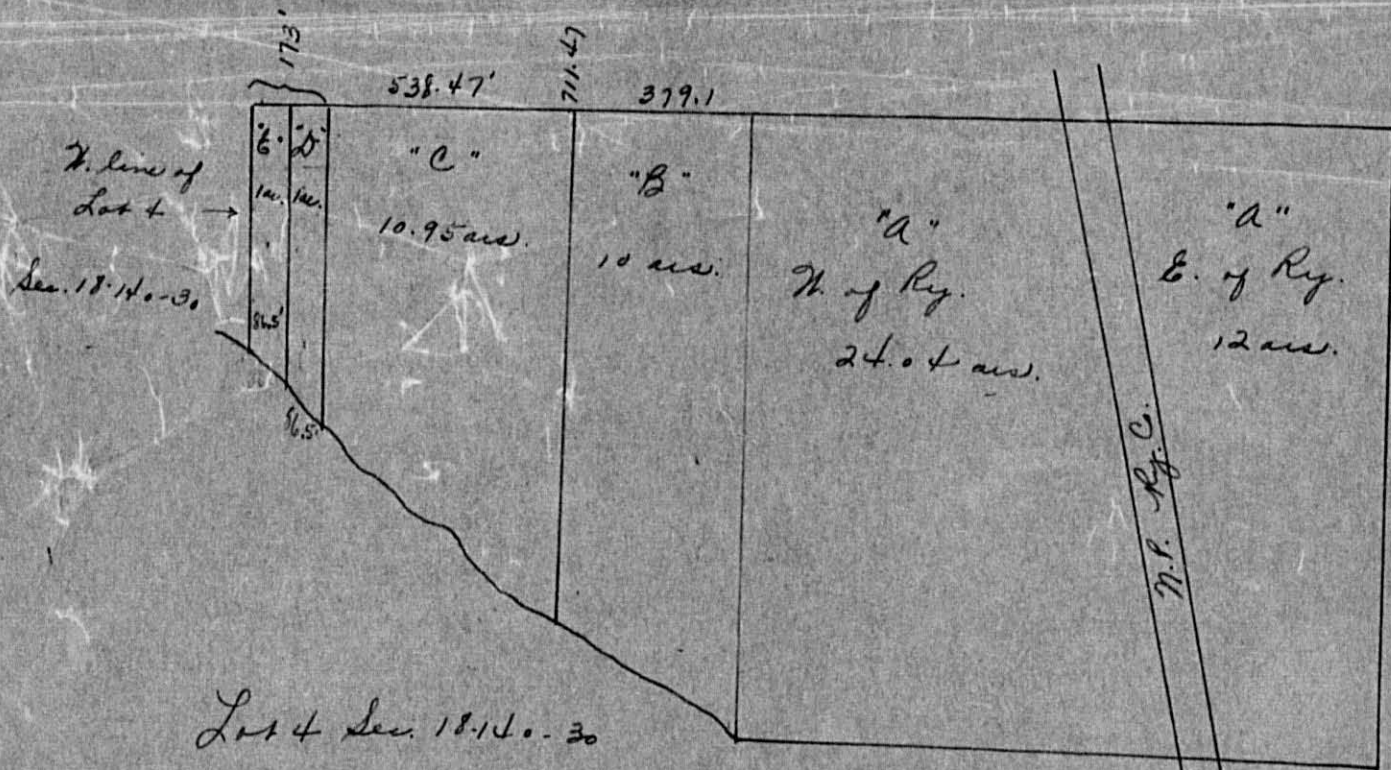 173'
538.47'
711.47
379.1
W. line of
Lot 4 →
Sec. 18-140-30
"E"
1 ac.
86.5'
"D"
1 ac.
86.5'
"C"
10.95 acs.
"B"
10 acs.
"A"
W. of Ry.
24.04 acs.
N.P. Ry. Co.
"A"
E. of Ry.
12 acs.
Lot 4 Sec. 18-140-30